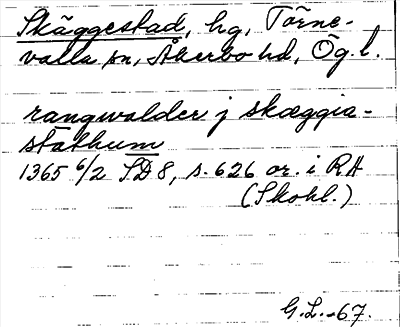 Skäggestad, hg, Törne-
valla sn, Åkerbo hd, Ög. l.
rangwalder j skæggia-
stathum
1365 6/2 SD 8, s. 626 or. i RA
(Skohl.)
G.L.-67.